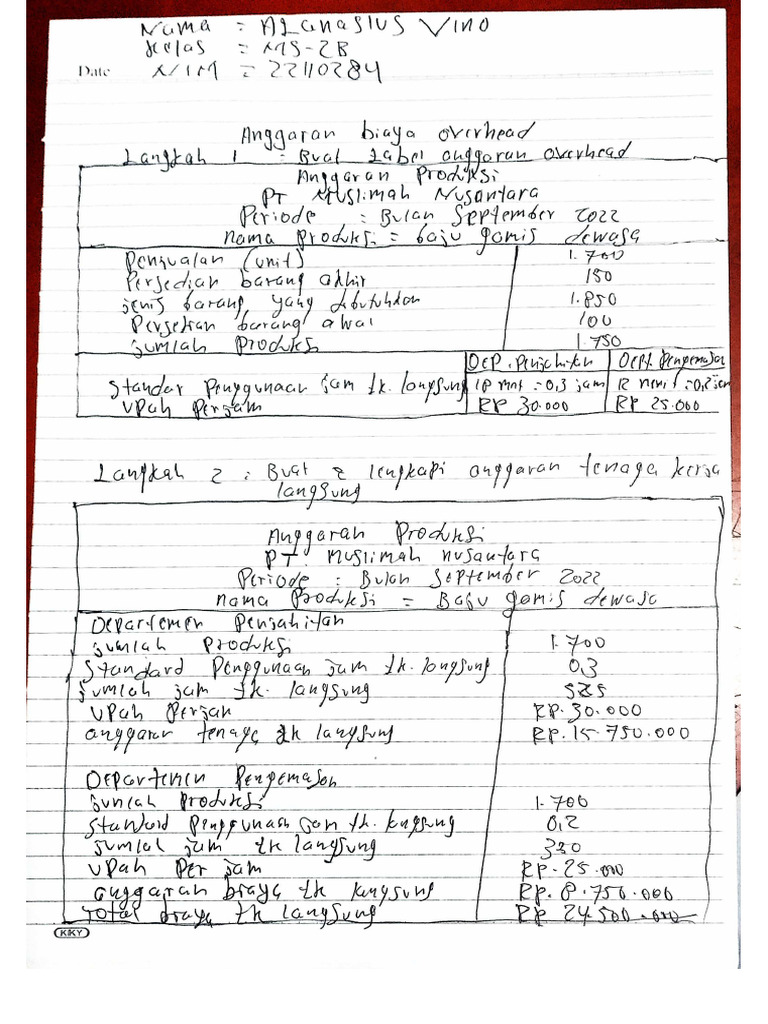 Nama = Atanasius Vino
Kelas = MS-2B
Date NIM = 22110284
Anggaran biaya overhead
Langkah 1 : Buat tabel anggaran overhead
Anggaran Produksi
PT Muslimah Nusantara
Periode : Bulan September 2022
nama Produksi = baju gamis dewasa
Penjualan (unit) 1.700
Persedian barang akhir 150
jenis barang yang dibutuhkan 1.850
Persedian barang awal 100
Jumlah Produksi 1.750
DEP. Penjahitan DEPT. Pengemasan
Standar Penggunaan jam tk. langsung 18 mnt = 0,3 jam 12 menit = 0,2 jam
Upah Perjam RP 30.000 RP 25.000
Langkah 2 : Buat & lengkapi anggaran tenaga kerja
langsung
Anggaran Produksi
PT. Muslimah nusantara
Periode : Bulan September 2022
nama Produksi = Baju gamis dewasa
Departemen Penjahitan
jumlah Produksi 1.700
Standard Penggunaan jam tk. langsung 0,3
Jumlah jam tk. langsung 525
Upah Perjam RP. 30.000
anggaran tenaga tk langsung RP. 15.750.000
Departemen Pengemasan
jumlah Produksi 1.700
Standard Penggunaan jam tk. langsung 0,2
Jumlah jam tk langsung 350
Upah Per jam RP. 25.000
anggaran biaya tk langsung RP. 8.750.000
Total biaya tk langsung RP 24.500.000
KIKY